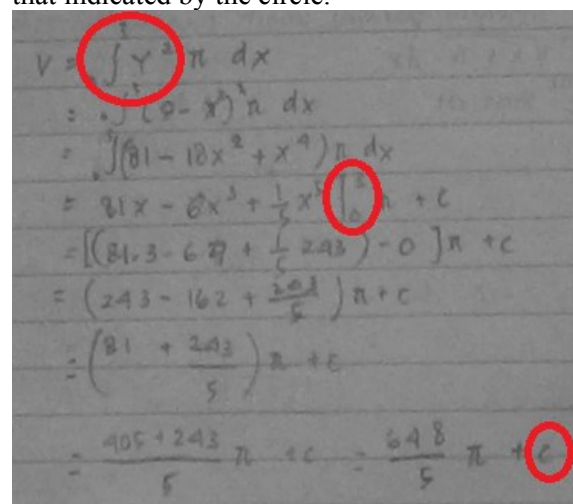 that indicated by the circle.
V = ₀∫³ Y² π dx
= ₀∫³ (9 - x²)² π dx
= ₀∫³ (81 - 18x² + x⁴) π dx
= 81x - 6x³ + 1/5 x⁵ ]₀³ π + c
= [(81.3 - 6.27 + 1/5 243) - 0] π + c
= (243 - 162 + 243/5) π + c
= (81 + 243/5) π + c
= 405 + 243/5 π + c = 648/5 π + c